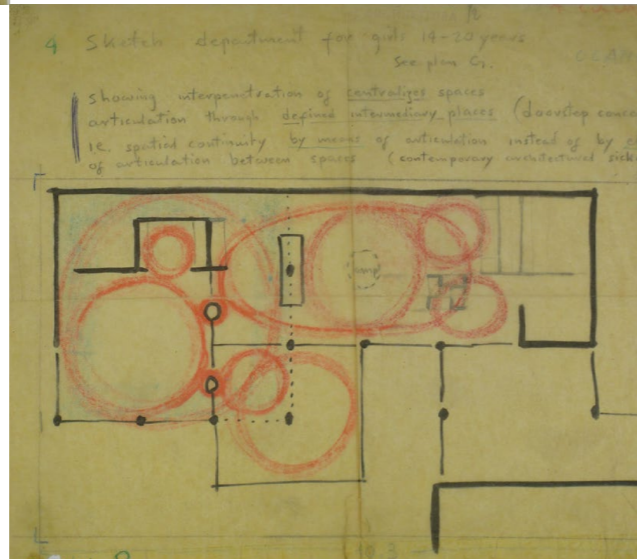 4 Sketch department for girls 14-20 years
See plan G.
showing interpenetration of centralized spaces
articulation through defined intermediary places (doorstep conce
i.e. spatial continuity by means of articulation instead of by
of articulation between spaces (contemporary architectural sick